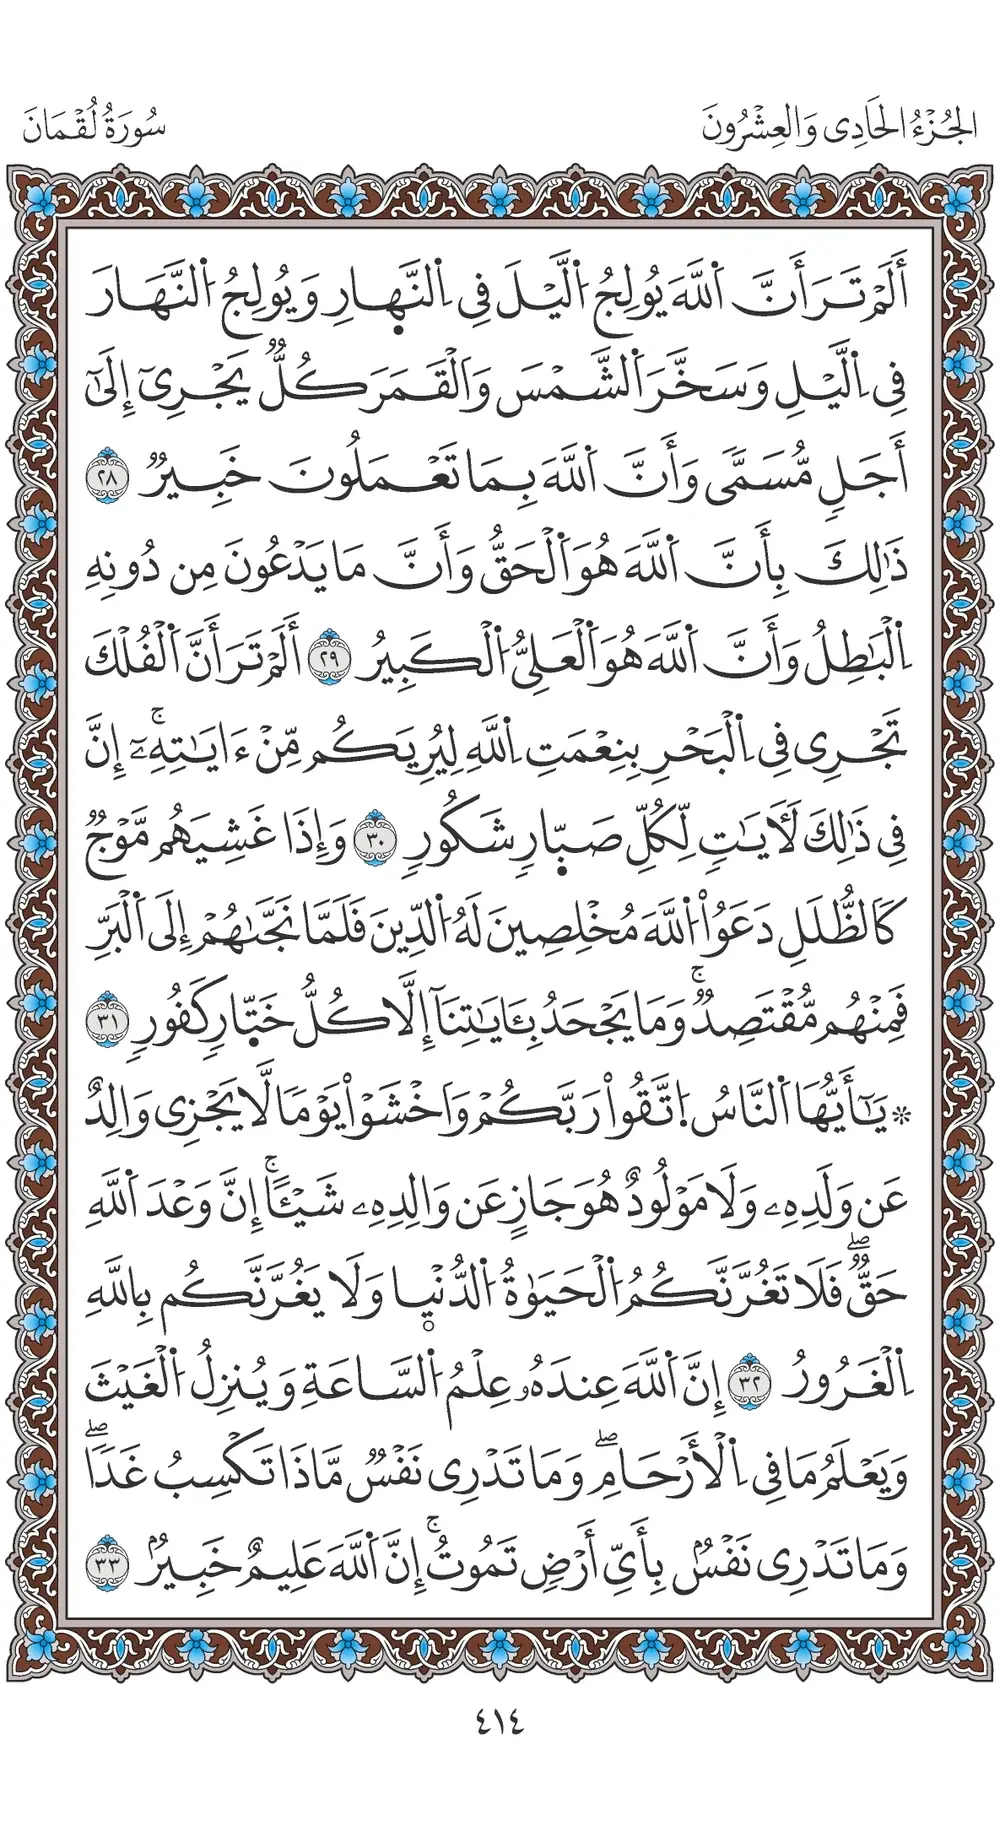 الجُزْءُ الحَادِى وَالعِشْرُونَ
سُورَةُ لُقْمَانَ
أَلَمْ تَرَ أَنَّ اَ۬للَّهَ يُولِجُ اُ۬لَّيْلَ فِي اِ۬لنَّه۪ارِ وَيُولِجُ اُ۬لنَّهَارَ
فِي اِ۬لَّيْلِ وَسَخَّرَ اَ۬لشَّمْسَ وَالْقَمَرَ كُلٌّ يَجْرِىٓ إِلَىٰٓ
أَجَلٍ مُّسَمًّى وَأَنَّ اَ۬للَّهَ بِمَا تَعْمَلُونَ خَبِيرٌ ٢٨
ذَٰلِكَ بِأَنَّ اَ۬للَّهَ هُوَ اَ۬لْحَقُّ وَأَنَّ مَا يَدْعُونَ مِن دُونِهِ
اِ۬لْبَٰطِلُ وَأَنَّ اَ۬للَّهَ هُوَ اَ۬لْعَلِىُّ اُ۬لْكَبِيرُ ٢٩ أَلَمْ تَرَ أَنَّ اَ۬لْفُلْكَ
تَجْرِى فِي اِ۬لْبَحْرِ بِنِعْمَتِ اِ۬للَّهِ لِيُرِيَكُم مِّنْ ءَايَٰتِهِۦٓۚ إِنَّ
فِى ذَٰلِكَ لَأٓيَٰتٍ لِّكُلِّ صَبّ۪ارٍ شَكُورٍ ٣٠ وَإِذَا غَشِيَهُم مَّوْجٌ
كَالظُّلَلِ دَعَوُاْ اُ۬للَّهَ مُخْلِصِينَ لَهُ اُ۬لدِّينَ فَلَمَّا نَجَّىٰهُمْ إِلَى اَ۬لْبَرِّ
فَمِنْهُم مُّقْتَصِدٌۚ وَمَا يَجْحَدُ بِـَٔايَٰتِنَآ إِلَّا كُلُّ خَتّ۪ارٍ كَفُورٍ ٣١
۞ يَٰٓأَيُّهَا اَ۬لنَّاسُ اُ۪تَّقُواْ رَبَّكُمْ وَاخْشَوْاْ يَوْمًا لَّا يَجْزِى وَالِدٌ
عَن وَلَدِهِۦ وَلَا مَوْلُودٌ هُوَ جَازٍ عَن وَالِدِهِۦ شَيْـًٔاۚ إِنَّ وَعْدَ اَ۬للَّهِ
حَقٌّۖ فَلَا تَغُرَّنَّكُمُ اُ۬لْحَيَوٰةُ اُ۬لدُّنْي۪ا وَلَا يَغُرَّنَّكُم بِاللَّهِ
اِ۬لْغَرُورُ ٣٢ إِنَّ اَ۬للَّهَ عِندَهُۥ عِلْمُ اُ۬لسَّاعَةِ وَيُنزِلُ اُ۬لْغَيْثَ
وَيَعْلَمُ مَا فِي اِ۬لْأَرْحَامِۖ وَمَا تَدْرِى نَفْسٌ مَّاذَا تَكْسِبُ غَدًاۖ
وَمَا تَدْرِى نَفْسٌۢ بِأَىِّ أَرْضٍ تَمُوتُۚ إِنَّ اَ۬للَّهَ عَلِيمٌ خَبِيرٌۢ ٣٣
٤١٤